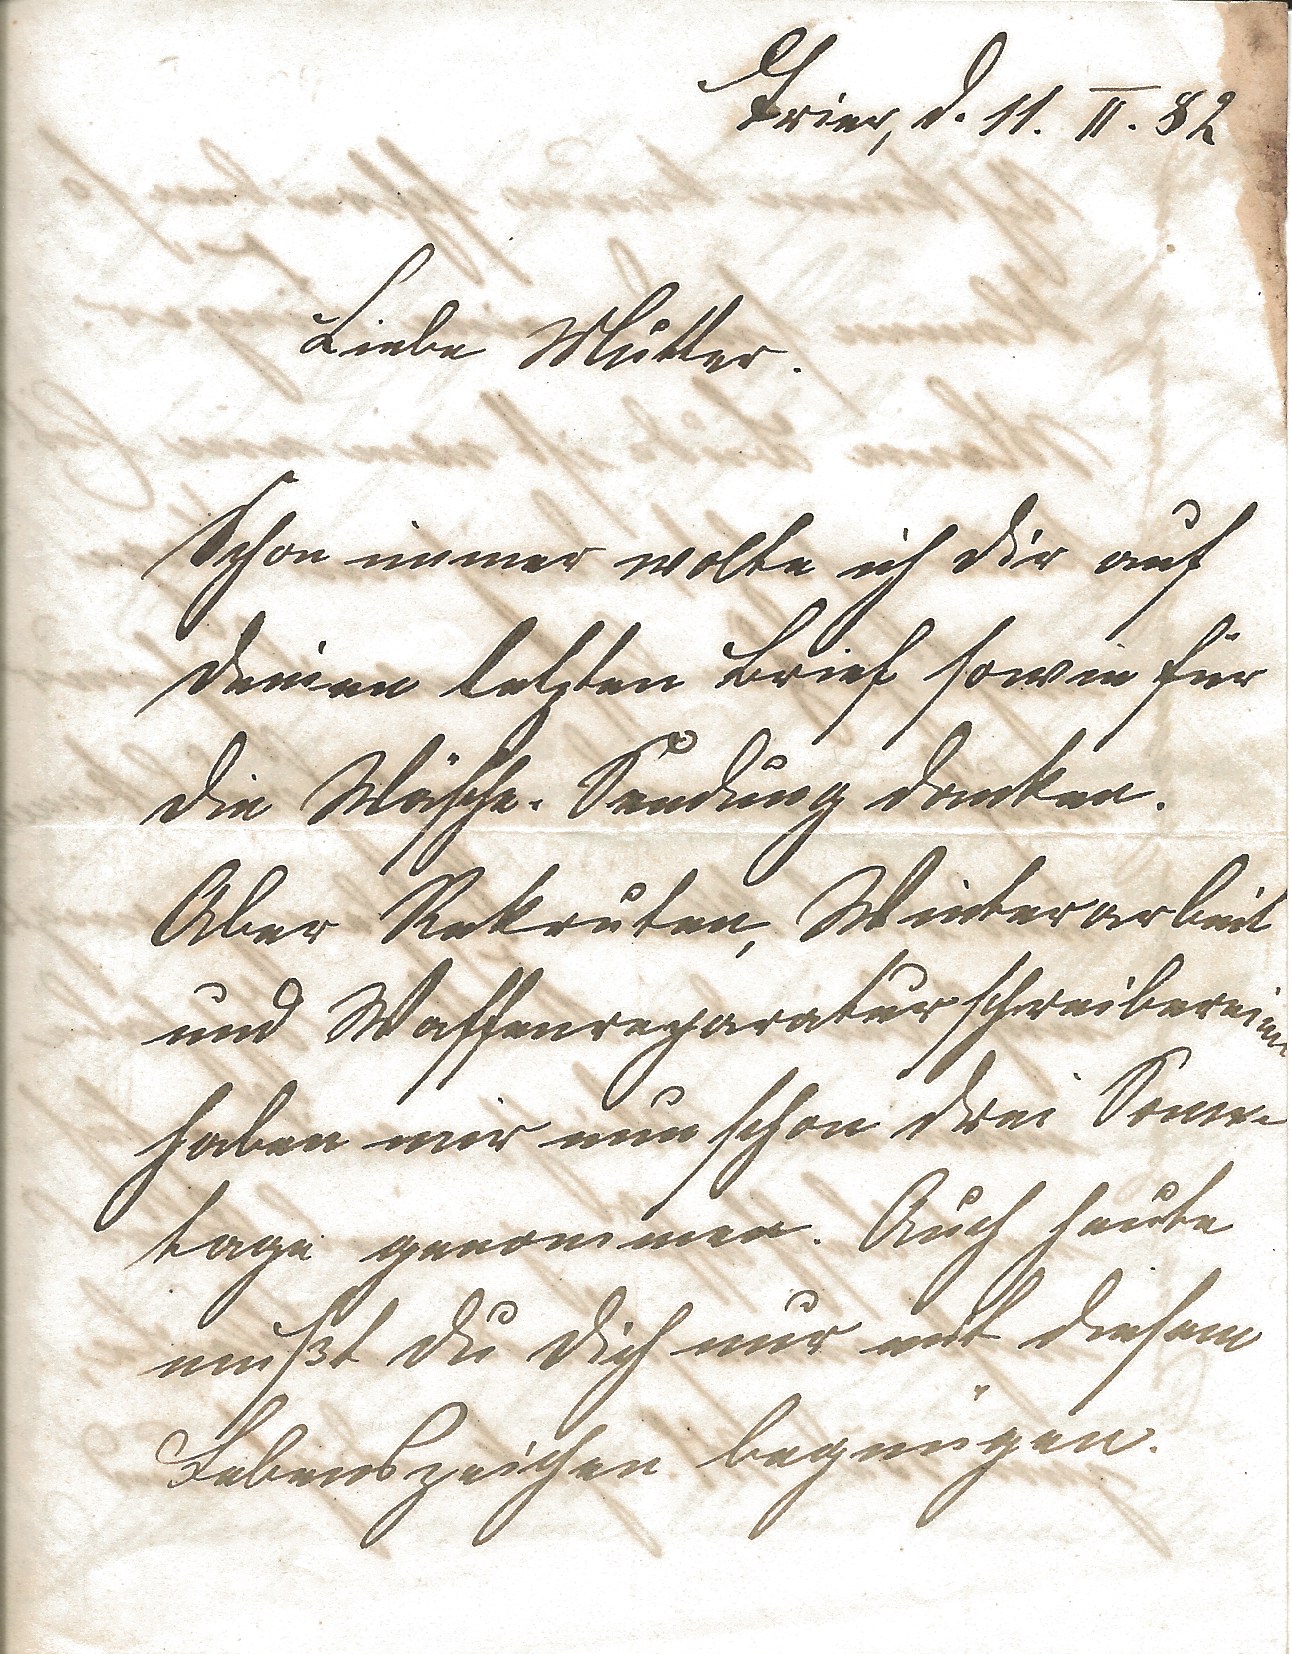 Trier, d. 11. II. 82
Liebe Mutter.
Schon immer wollte ich Dir auf
Deinen letzten Brief sowie für
die Wäsche-Sendung danken.
Aber Rekruten, Winterarbeit
und Waffenreparaturschreibereien
haben mir nun schon drei Sonn-
tage genommen. Auch heute
mußt Du Dich nur mit diesem
Lebenszeichen begnügen.